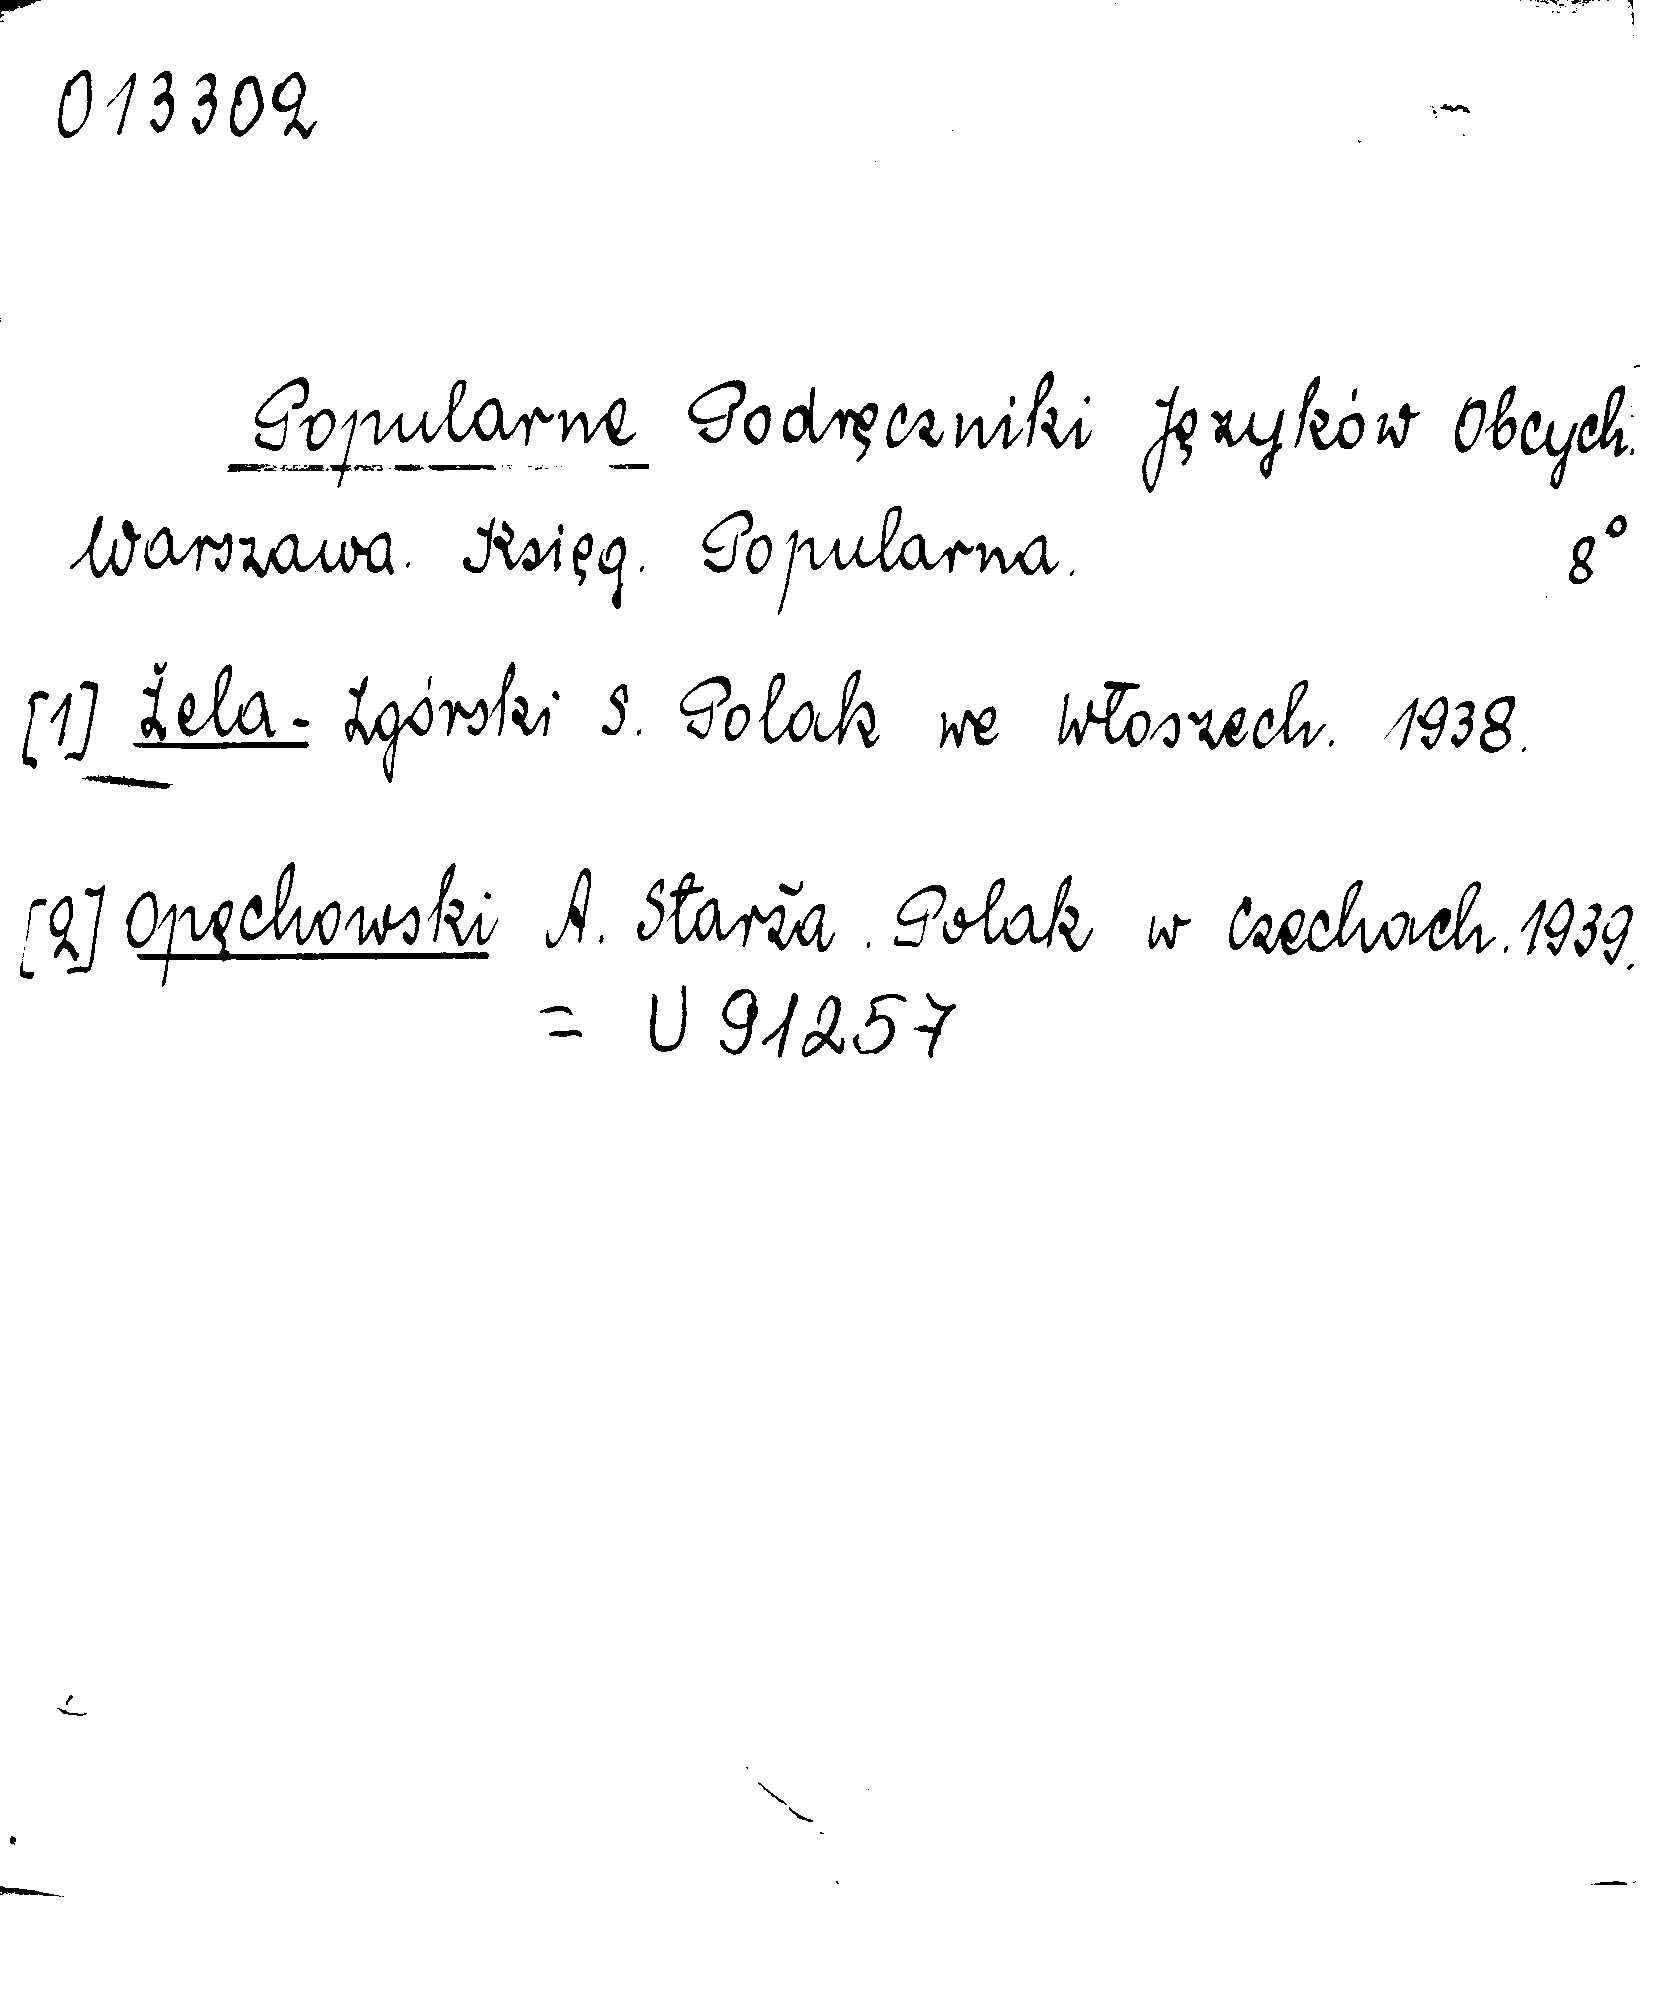 013302
Popularne Podręczniki Języków Obcych.
Warszawa. Księg. Popularna. 8°
[1] Żela-Zgórski S. Polak we Włoszech. 1938.
[2] Opęchowski A. Starża. Polak w Czechach. 1939.
= U 91257